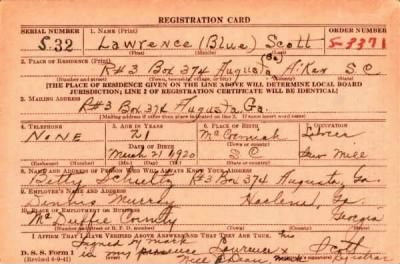 REGISTRATION CARD
SERIAL NUMBER 1. NAME (Print) ORDER NUMBER
S-32 Lawrence (Blue) Scott S-3371
(First) (Middle) (Last)
2. PLACE OF RESIDENCE (Print)
R#3 Box 374 Augusta Aiken S C
(Number and street) (Town, township, village, or city) (County) (State)
[THE PLACE OF RESIDENCE GIVEN ON THE LINE ABOVE WILL DETERMINE LOCAL BOARD
JURISDICTION; LINE 2 OF REGISTRATION CERTIFICATE WILL BE IDENTICAL]
3. MAILING ADDRESS
R#3 Box 374 Augusta Ga.
[Mailing address if other than place indicated on line 2. If same insert word same]
4. TELEPHONE 5. AGE IN YEARS 6. PLACE OF BIRTH 7. OCCUPATION
NONE 21 McCormick Laborer
DATE OF BIRTH (Town or county)
March 21 1920 S C Saw Mill
(Exchange) (Number) (Mo.) (Day) (Yr.) (State or country)
8. NAME AND ADDRESS OF PERSON WHO WILL ALWAYS KNOW YOUR ADDRESS
R#3 Box 374 Augusta, Ga.
9. EMPLOYER'S NAME AND ADDRESS
Dennis Murray Harlem, Ga.
10. PLACE OF EMPLOYMENT OR BUSINESS
McDuffie County Georgia
(Number and street or R. F. D. number) (Town) (County) (State)
I AFFIRM THAT I HAVE VERIFIED ABOVE ANSWERS AND THAT THEY ARE TRUE.
his
Signed by mark
in my presence Lawrence x Scott
D. S. S. Form 1
(Revised 6-9-41) mark Registrar